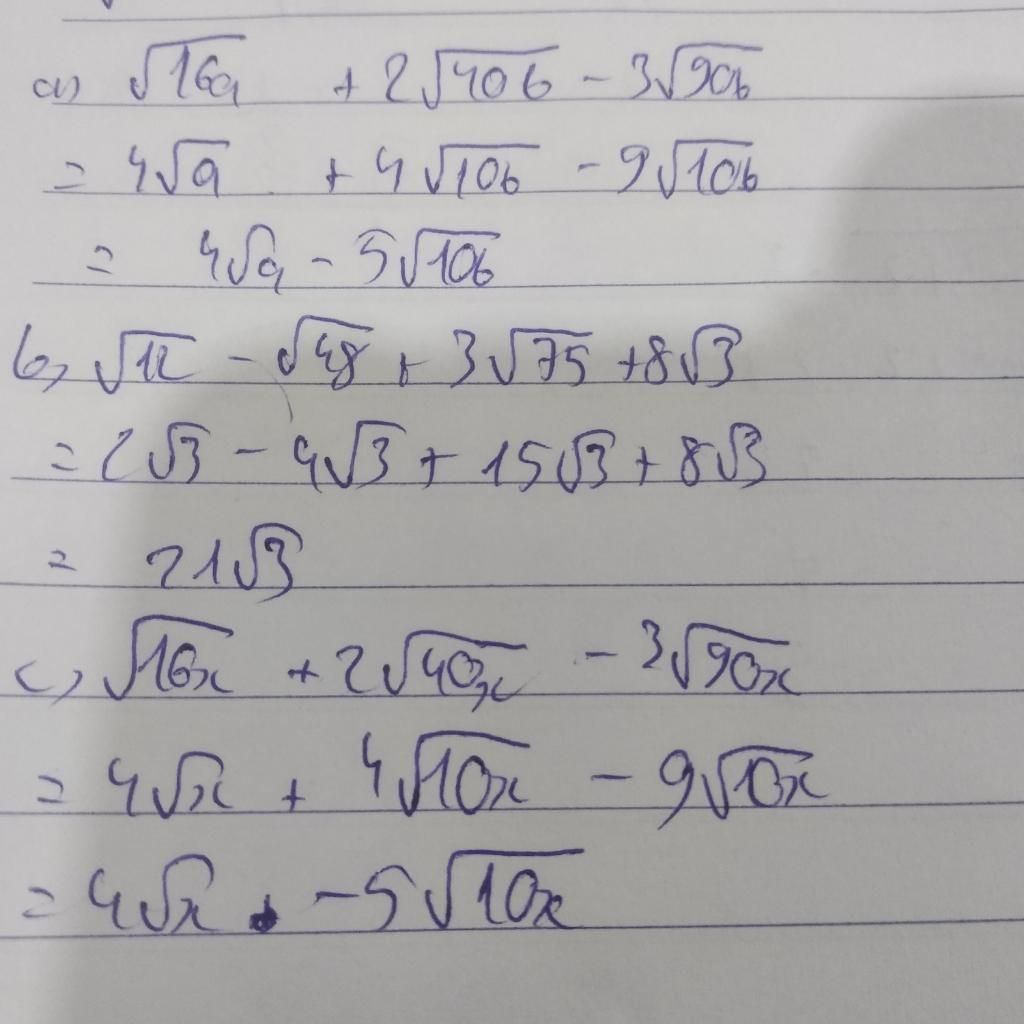 a) √16a + 2√40b - 3√90b
= 4√a + 4√10b - 9√10b
= 4√a - 5√10b
b, √12 - √48 + 3√75 + 8√3
= 2√3 - 4√3 + 15√3 + 8√3
= 21√3
c, √16x + 2√40x - 3√90x
= 4√x + 4√10x - 9√10x
= 4√x - 5√10x